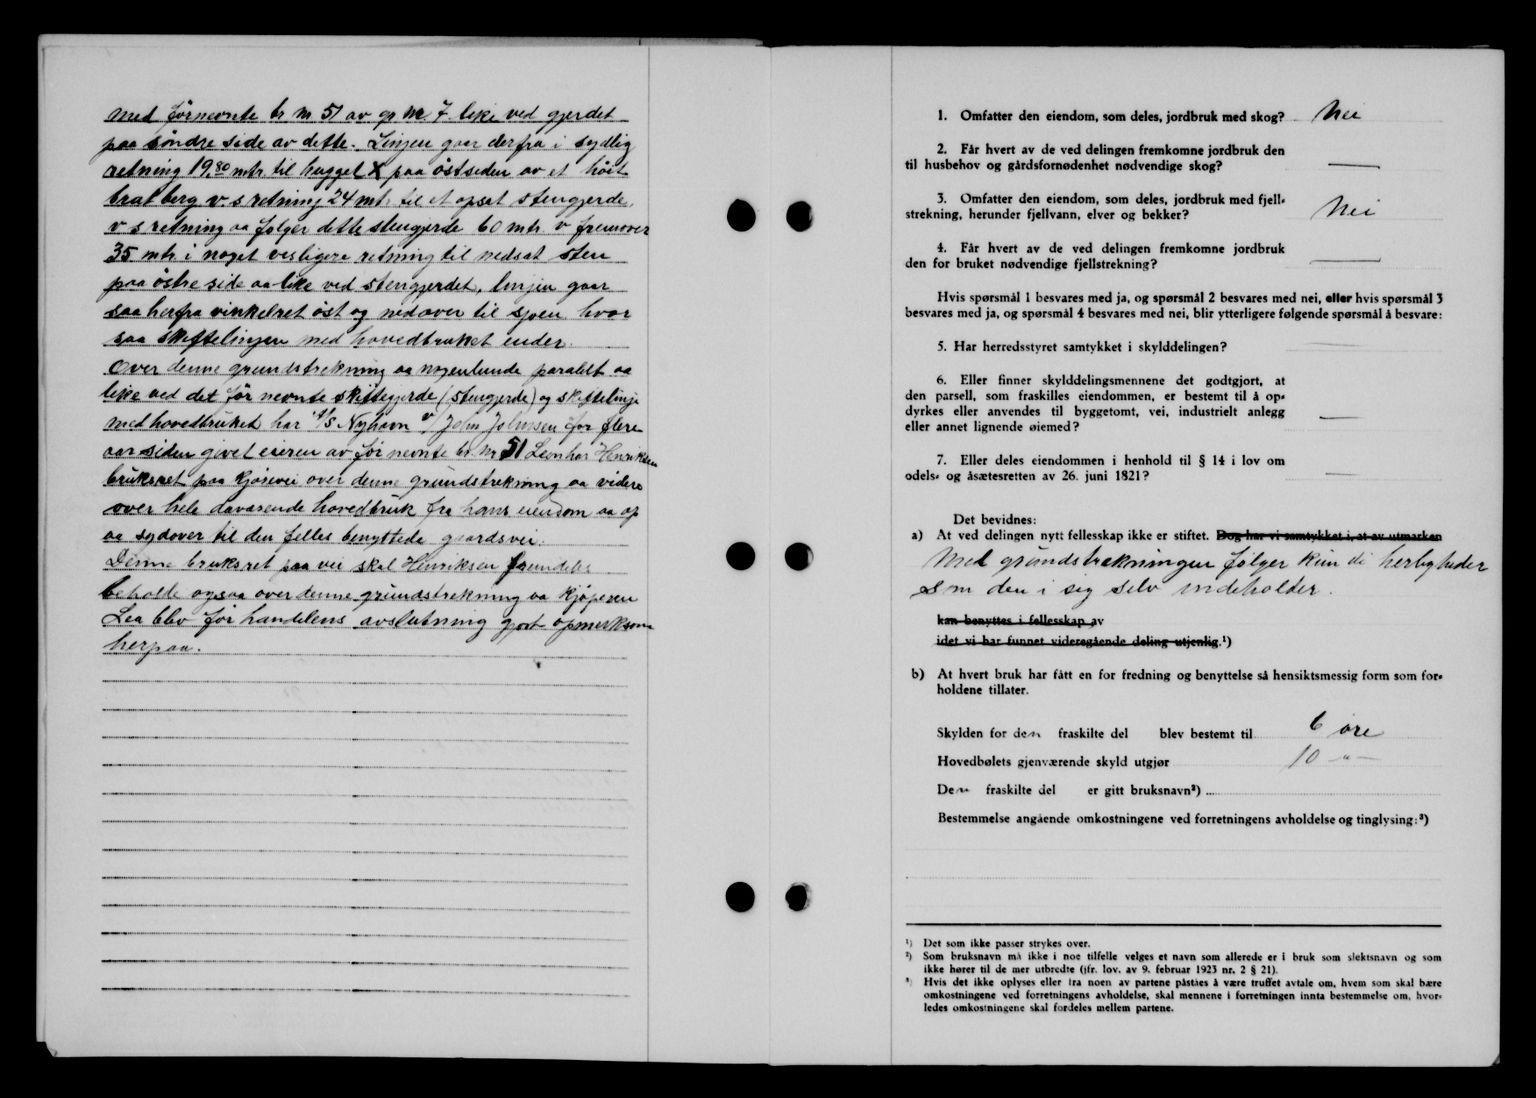 med førnevnte br nr 51 av gr nr 7. like ved gjerdet
paa søndre side av dette. Linjen gaar derfra i sydlig
retning 19,80 mtr. til hugget X paa østsiden av et høit
brat berg v. s retning 24 mtr. til et opsat stengjerde.
v s retning aa følger dette stengjerde 60 mtr. v fremover
35 mtr. i noget vestligere retning til nedsat sten
paa østre side aa like ved stengjerdet, linjen gaar
saa herfra vinkelret øst og nedover til sjøen hvor
saa skiftelinjen med hovedbruket ender.
Over denne grundstrekning aa nogenlunde paralelt aa
like ved det før nevnte skiftegjerde (stengjerde) og skiftelinje
med hovedbruket har A/S Nyhavn v/ John Johnsen for flere
aar siden givet eieren av før nevnte br. nr 51 Leonhar Henriksen
bruksret paa kjørevei over denne grundstrekning aa videre
over hele daværende hovedbruk fra hans eiendom aa op
aa sydover til den felles benyttede gaardsvei.
Denne bruksret paa vei skal Henriksen fremdeles
beholde ogsaa over denne grundstrekning aa kjøperen
Lea blev før handelens avslutning gjort opmerksom
herpaa.
1. Omfatter den eiendom, som deles, jordbruk med skog? Nei
2. Får hvert av de ved delingen fremkomne jordbruk den
til husbehov og gårdsfornødenhet nødvendige skog? —
3. Omfatter den eiendom, som deles, jordbruk med fjell-
strekning, herunder fjellvann, elver og bekker? Nei
4. Får hvert av de ved delingen fremkomne jordbruk
den for bruket nødvendige fjellstrekning? —
Hvis spørsmål 1 besvares med ja, og spørsmål 2 besvares med nei, eller hvis spørsmål 3
besvares med ja, og spørsmål 4 besvares med nei, blir ytterligere følgende spørsmål å besvare:
5. Har herredsstyret samtykket i skylddelingen?
6. Eller finner skylddelingsmennene det godtgjort, at
den parsell, som fraskilles eiendommen, er bestemt til å op-
dyrkes eller anvendes til byggetomt, vei, industrielt anlegg
eller annet lignende øiemed? —
7. Eller deles eiendommen i henhold til § 14 i lov om
odels- og åsætesretten av 26. juni 1821? —
Det bevidnes:
a) At ved delingen nytt fellesskap ikke er stiftet. Dog har vi samtykket i, at av utmarken
Med grundstrekningen følger kun de herligheder
som den i sig selv indeholder.
kan benyttes i fellesskap av
idet vi har funnet videregående deling utjenlig.¹)
b) At hvert bruk har fått en for fredning og benyttelse så hensiktsmessig form som for-
holdene tillater.
Skylden for den fraskilte del blev bestemt til 6 øre
Hovedbølets gjenværende skyld utgjør 10 -"-
Den fraskilte del er gitt bruksnavn²)
Bestemmelse angående omkostningene ved forretningens avholdelse og tinglysing:³)
¹) Det som ikke passer strykes over.
²) Som bruksnavn må ikke i noe tilfelle velges et navn som allerede er i bruk som slektsnavn og som
ikke hører til de mer utbredte (jfr. lov. av 9. februar 1923 nr. 2 § 21).
³) Hvis det ikke oplyses eller fra noen av partene påståes å være truffet avtale om, hvem som skal bære
omkostningene ved forretningens avholdelse, skal mennene i forretningen innta bestemmelse om, hvor-
ledes omkostningene skal fordeles mellem partene.